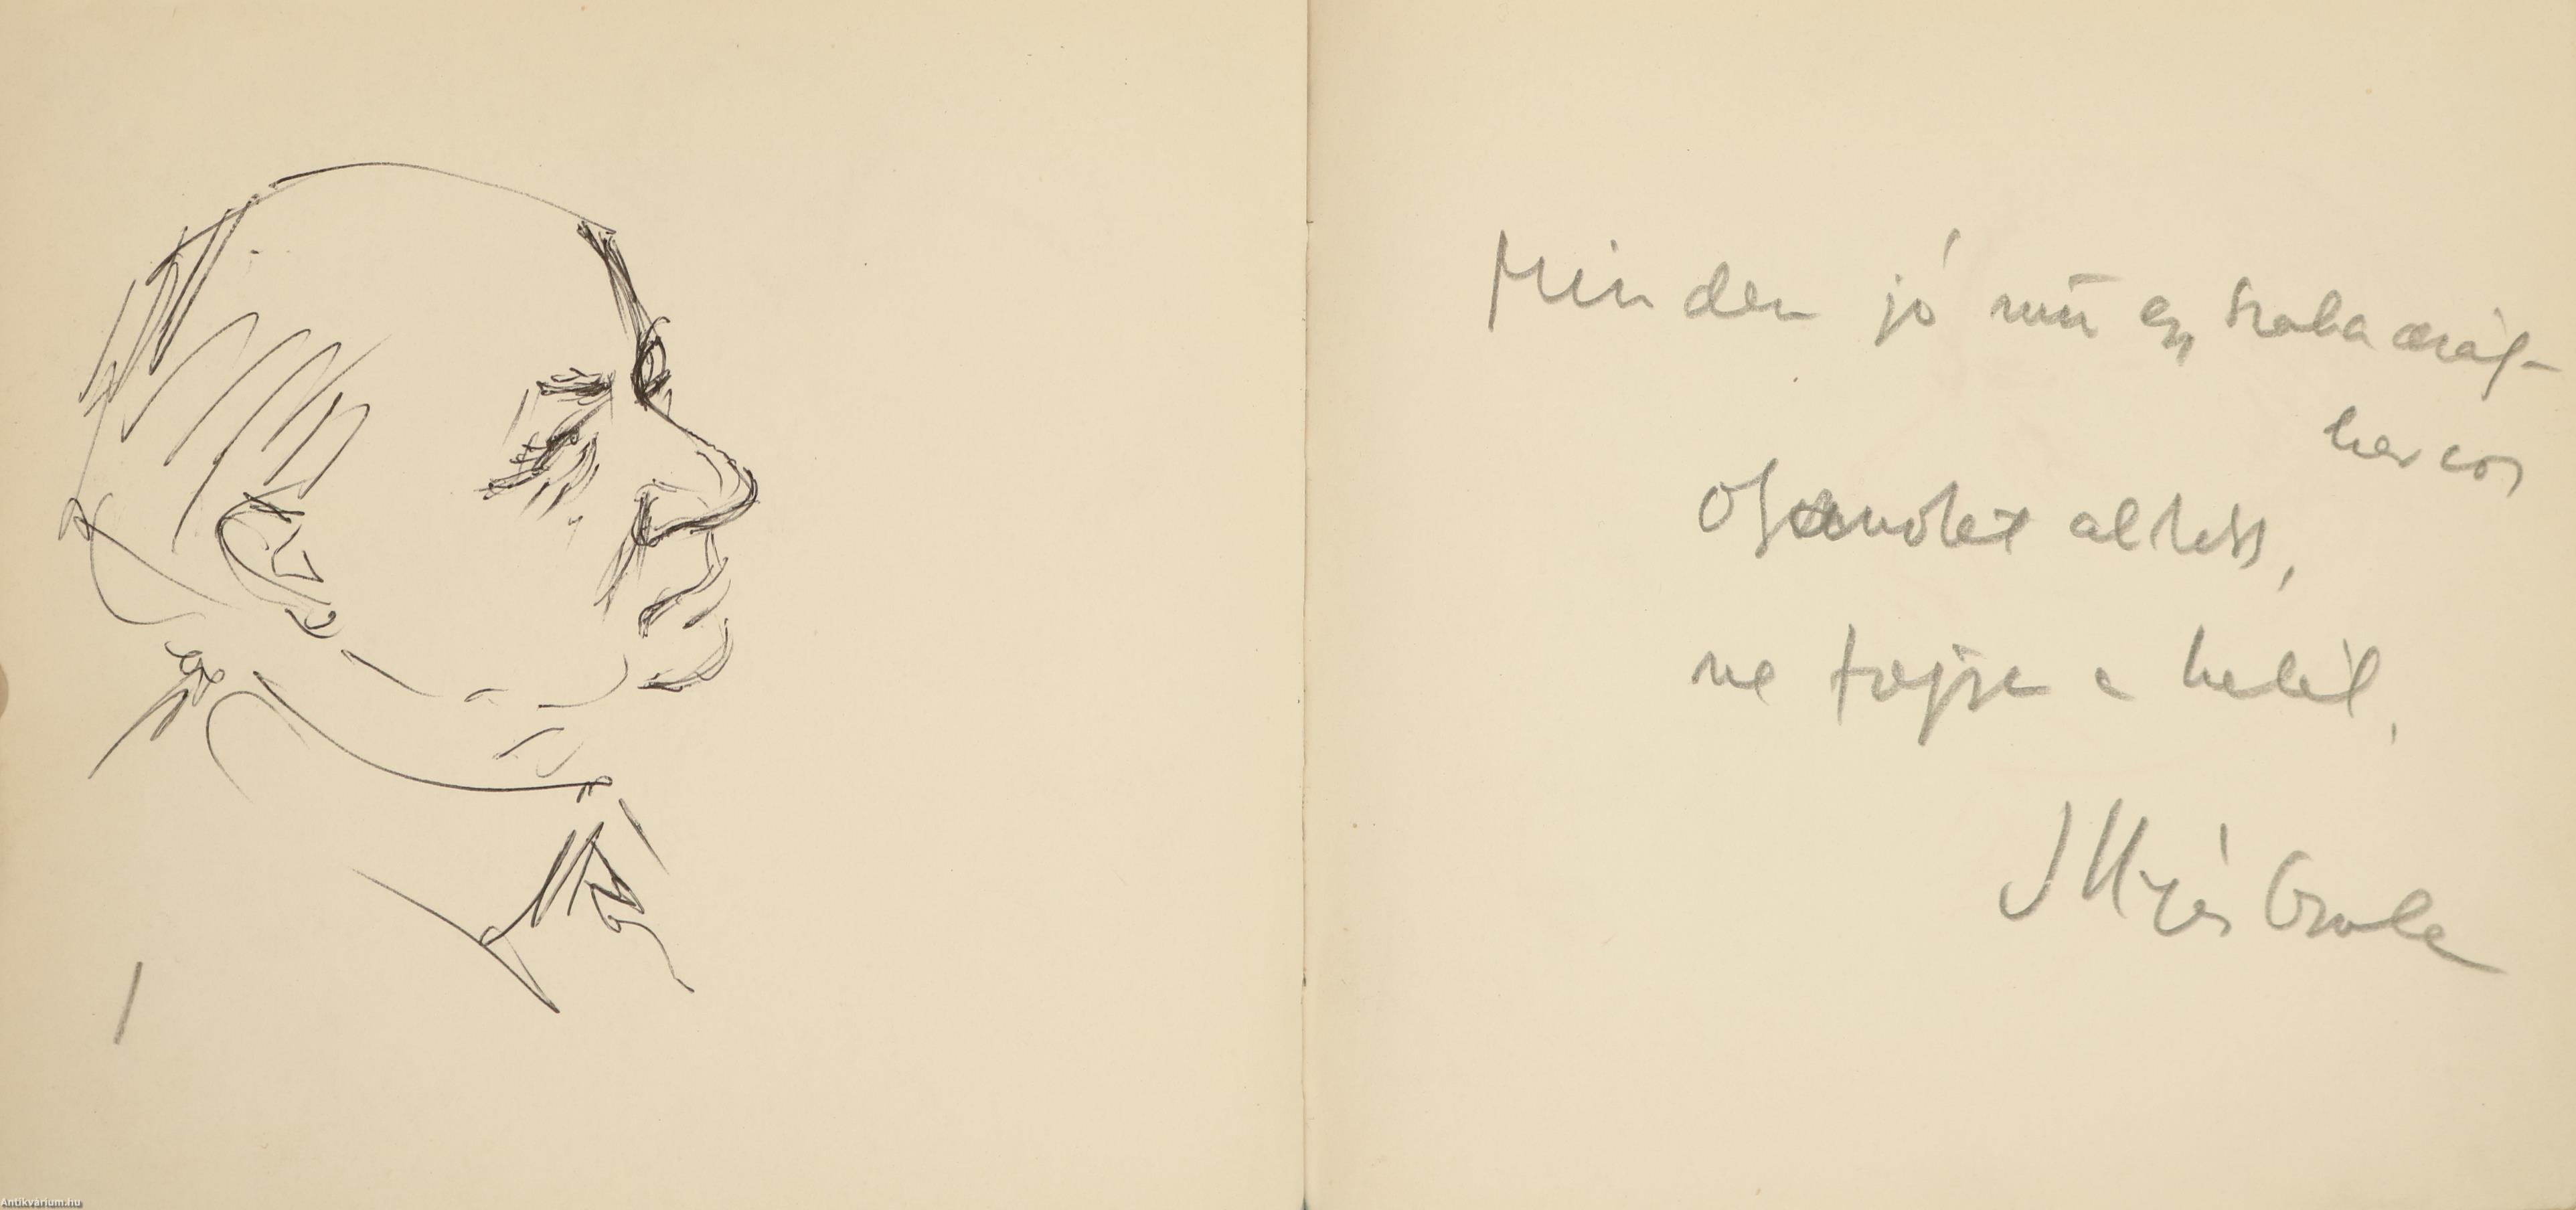 Minden jó mű egy szabadság-
harcos
Olyanokat alkoss,
ne fojtsa a halál.
Illyés Gyula
Antikvárium.hu